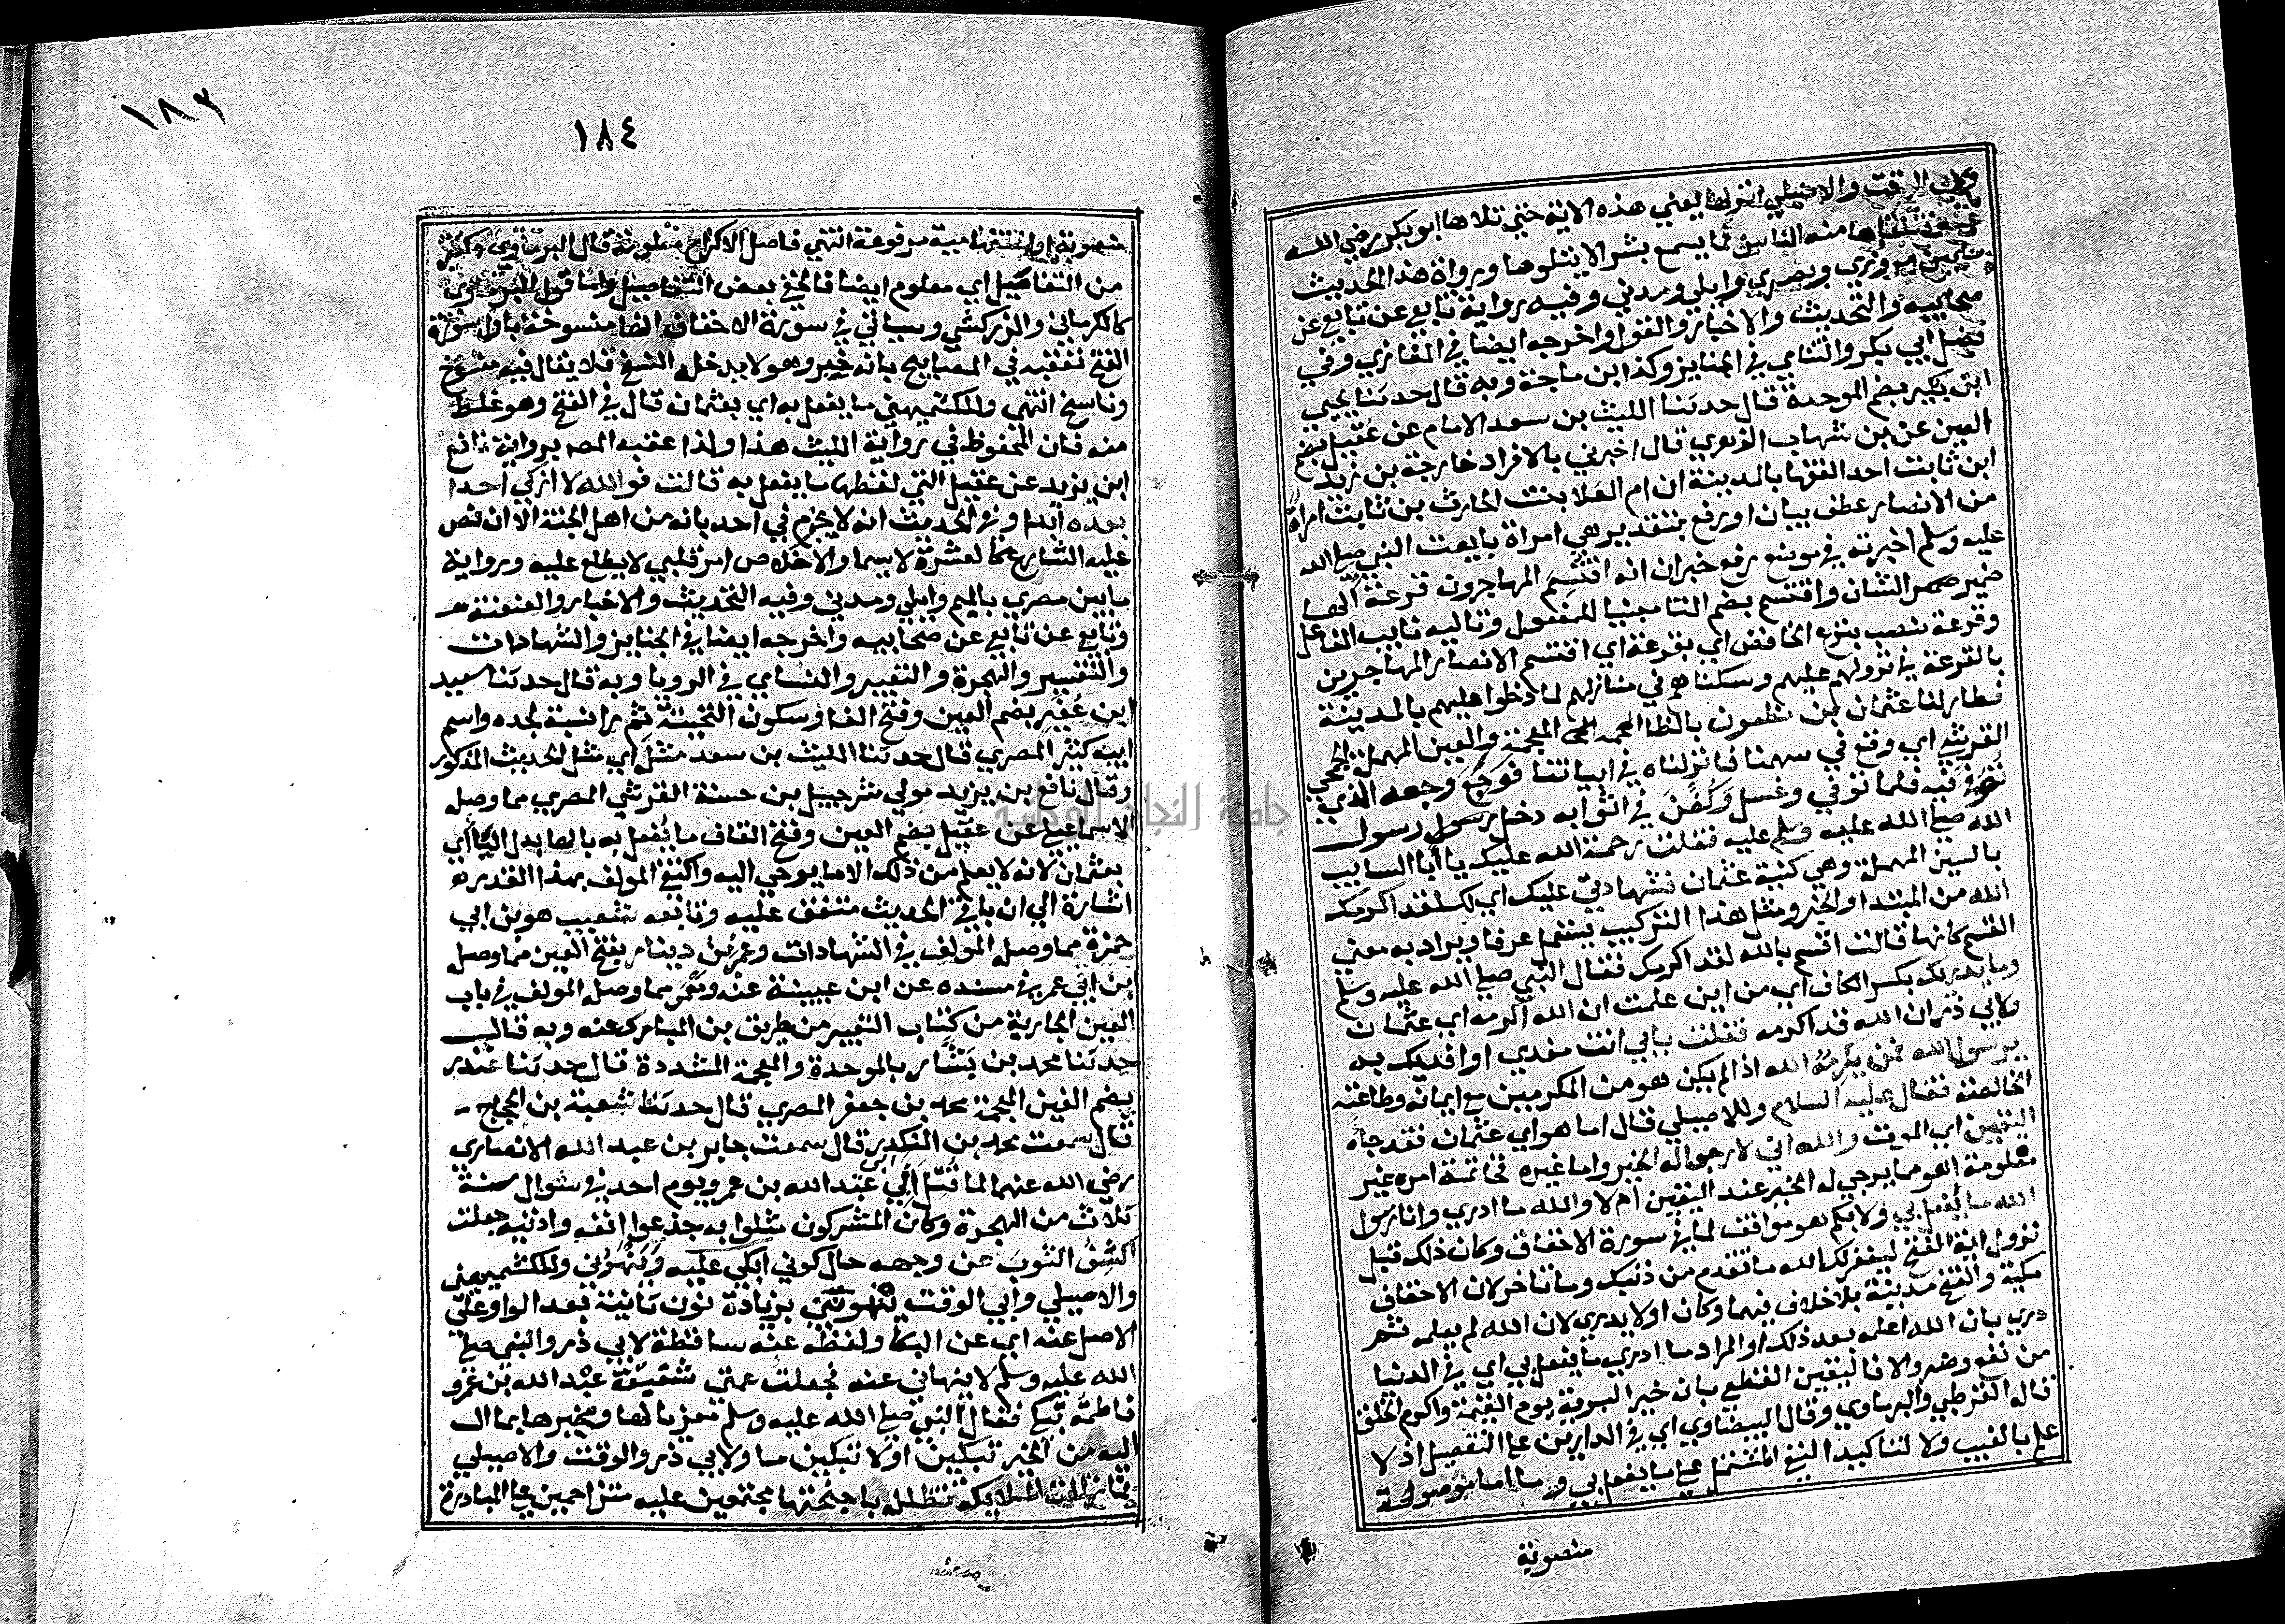 وابي الوقت والاصيلي انزلها يعني هذه الاية حتي تلاها ابو بكر رضي الله
عنه فتلقاها منه الناس فما يسمع بشر الا يتلوها ورواة هذا الحديث
مابين مروزي وبصري وايلي ومدني وفيه رواية تابعي عن تابعي عن
صحابيه والتحديث والاخبار والقول واخرجه ايضا في المغازي وفي
فضل ابي بكر والنساي في الجنايز وكذا ابن ماجة وبه قال حدثنا يحيي
ابن بكير بضم الموحدة قال حدثنا الليث بن سعد الامام عن عقيل بضم
العين عن بن شهاب الزهري قال اخبرني بالافراد خارجة بن زيد
ابن ثابت احد الفقها بالمدينة ان ام العلا بنت الحارث بن ثابت امراة
من الانصار عطف بيان او رفع بتقدير هي امراة بايعت النبي صلي الله
عليه وسلم اخبرته في موضع رفع خبر ان انه اقتسم المهاجرون قرعة الها
ضمير الشان واقتسم بضم التا مبنيا للمفعول وتاليه نايب الفاعل
وقرعة نصب بنزع الخافض اي بقرعة اي اقتسم الانصار المهاجرين
بالقرعة في نزولهم عليهم وسكناهم في منازلهم لما دخلوا عليهم بالمدينة
فطار لنا عثمان بن مظعون بالظا المعجمة والعين المهملة الجمحي
القرشي اي وقع في سهمنا فانزلناه في ابياتنا فوجع وجعه الذي
توفي فيه فلما توفي وغسل وكفن في اثوابه دخل رسول
الله صلي الله عليه وسلم عليه فقلت رحمة الله عليك يا ابا السايب
بالسين المهملة وهي كنية عثمان فشهادتي عليك اي لك لقد اكرمك
الله من المبتدا والخبر ومثل هذا التركيب يستعمل عرفا ويراد به معني
القسم كانها قالت اقسم بالله لقد اكرمك فقال النبي صلي الله عليه وسلم
وما يدريك بكسر الكاف اي من اين علمت ان الله اكرمه اي عثمان
ولابي ذر ان الله قد اكرمه فقلت بابي انت مفدي او افديك به
يرسول الله فمن يكرمه الله اذا لم يكن هو من المكرمين مع ايمانه وطاعته
الخالصة فقال عليه السلام وللاصيلي قال اما هو اي عثمان فقد جاه
اليقين اي الموت والله اني لارجوا له الخير واما غيره فخاتمة امره غير
معلومة اهو مما يرجي له الخير عند اليقين ام لا والله ما ادري وانا رسول
الله ما يفعل بي ولا بكم هو موافق لما في سورة الاحقاف وكان ذلك قبل
نزول اية الفتح ليغفر لك الله ما تقدم من ذنبك وما تاخر لان الاحقاف
مكية والفتح مدينة بلا خلاف فيهما وكان اولا يدري لان الله لم يعلمه ثم
دري بان الله اعلمه بعد ذلك او المراد ما ادري ما يفعل بي اي في الدنيا
من نفع وضر والا فاليقين القطعي بانه خير البرية يوم القيمة واكرم الخلق
قاله القرطبي والبرماوي وقال البيضاوي اي في الدارين علي التفصيل اذ لا
علم بالغيب ولا لتاكيد النفي المشتمل علي ما يفعل بي وما اما موصولة
منصوبة
١٨٣
١٨٤
منصوبة او استفهامية مرفوعة انتهي فاصل الاكرام معلومة قال البرماوي وكثير
من التفاصيل اي معلوم ايضا فالخفي بعض التفاصيل واما قول البرماوي
كالكرماني والزركشي وسياتي في سورة الاحقاف انها منسوخة باول سورة
الفتح فتعقبه في المصابيح بانه خبر وهو لا يدخله النسخ فلا يقال فيه منسوخ
وناسخ انتهي وللكشميهني ما يفعل به اي بعثمان قال في الفتح وهو غلط
منه فان المحفوظ في رواية الليث هذا ولذا عقبه المصـ برواية نافع
ابن يزيد عن عقيل التي لفظها ما يفعل به قالت فوالله لا ازكي احدا
بعده ابدا وفي الحديث انه لا يجزم في احد بانه من اهل الجنة الا ان نص
عليه الشارع كالعشرة لاسيما والاخلاص امر قلبي لا يطلع عليه ورواية
مابين مصري بالميم وايلي ومدني وفيه التحديث والاخبار والعنعنة
وتابعي عن تابعي عن صحابيه واخرجه ايضا في الجنايز والشهادات
والتفسير والهجرة والتعبير والنساي في الرويا وبه قال حدثنا سعيد
ابن عفير بضم العين وفتح الفا وسكون التحتية ثم را نسبة لجده واسم
ابيه كثير المصري قال حدثنا الليث بن سعد مثله اي مثل الحديث المذكور
وقال نافع بن يزيد مولي شرحبيل بن حسنة القرشي المصري مما وصله
الاسماعيلي عن عقيل بضم العين وفتح القاف ما يفعل به بالها بدل اليا اي
بعثمان لانه لا يعلم من ذلك الا ما يوحي اليه واكتفي المولف بهذا القدر
اشارة الي ان باقي الحديث متفق عليه وتابعه شعيب هو بن ابي
حمزة مما وصله المولف في الشهادات وعمرو بن دينار بفتح العين مما وصله
ابن ابي عمر في مسنده عن ابن عيينة عنه ومعمر مما وصله المولف في باب
العين الجارية من كتاب التعبير من طريق بن المبارك عنه وبه قال
حدثنا محمد بن بشار بالموحدة والمعجمة المشددة قال حدثنا غندر
بضم الغين المعجمة محمد بن جعفر البصري قال حدثنا شعبة بن الحجاج
قال سمعت محمد بن المنكدر قال سمعت جابر بن عبد الله الانصاري
رضي الله عنهما لما قتل ابي عبد الله بن عمرو يوم احد في شوال سنة
ثلاث من الهجرة وكان المشركون مثلوا به جذعوا انفه واذنيه جعلت
اكشف الثوب عن وجهه حال كوني ابكي عليه وينهوني وللكشميهني
والاصيلي وابي الوقت ينهونني بزيادة نون ثانية بعد الواو علي
الاصل عنه اي عن البكا ولفظه عنه ساقطة لابي ذر والنبي صلي
الله عليه وسلم لا ينهاني عنه فجعلت عمتي شقيقة عبد الله بن عمرو
فاطمة تبكي فقال النبي صلي الله عليه وسلم معزيا لها ومخبرها بما ال
اليه من الخير تبكين او لا تبكين ما ولابي ذر والوقت والاصيلي
فما زالت الملايكة تظله باجنحتها مجتمعين عليه متزاحمين علي المبادرة
جامعة النجاح الوطنية